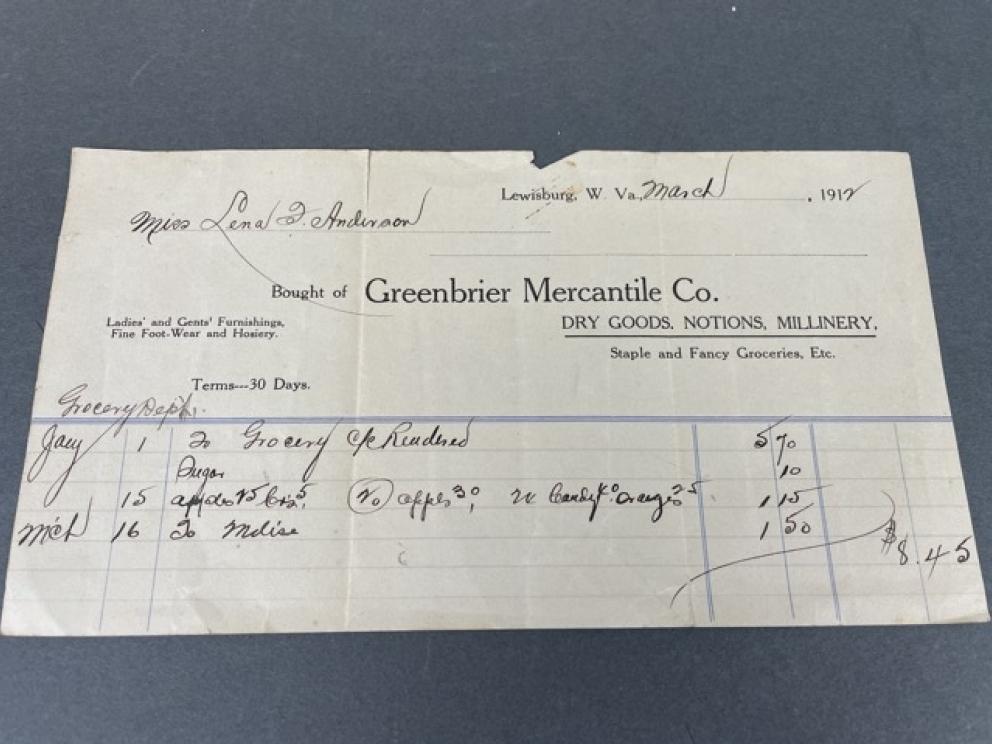 Lewisburg, W. Va., March, 1912
Miss Lena F. Anderson
Bought of Greenbrier Mercantile Co.
Ladies' and Gents' Furnishings,
Fine Foot-Wear and Hosiery.
DRY GOODS, NOTIONS, MILLINERY,
Staple and Fancy Groceries, Etc.
Terms---30 Days.
Grocery Dept.
Jany 1 To Grocery a/c Rendered 5 70
Sugar 10
15 apples 25 5 apples 30, candy oranges 25 1 15
Mch 16 To Mdise 1 50
$8.45